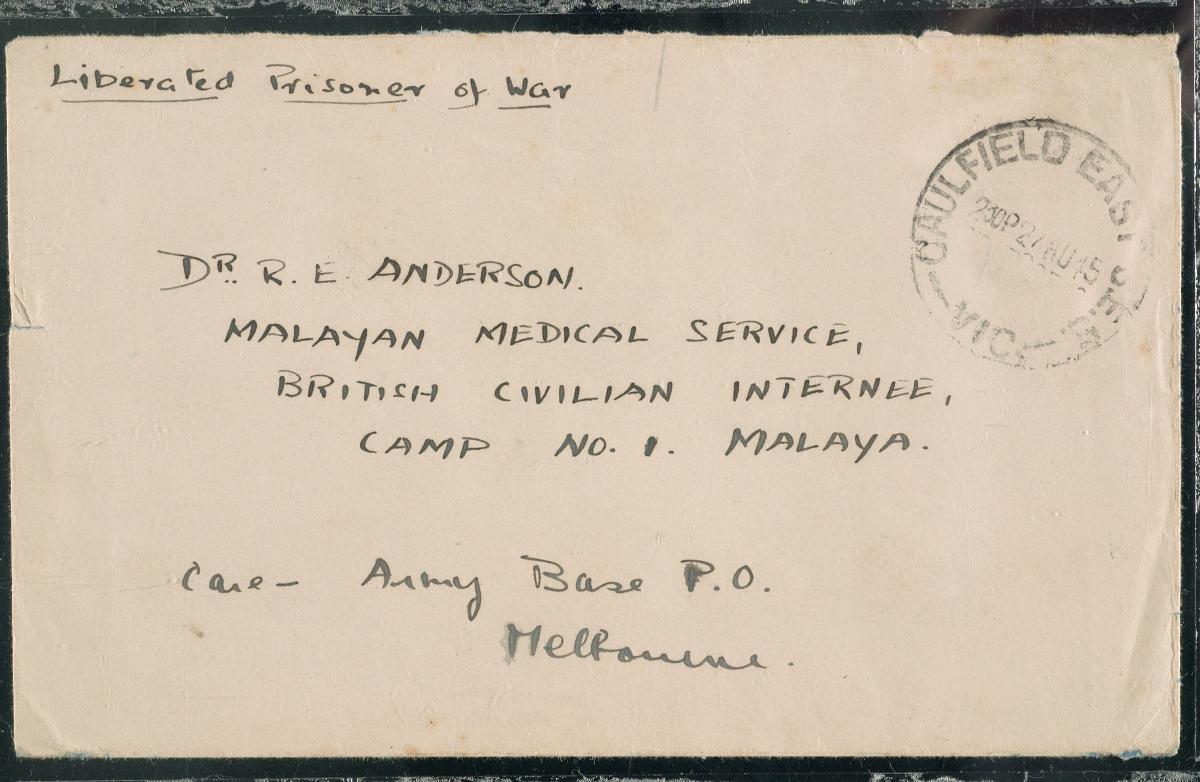 Liberated Prisoner of War
CAULFIELD EAST S.E.
VIC.
DR. R. E. ANDERSON.
MALAYAN MEDICAL SERVICE,
BRITISH CIVILIAN INTERNEE,
CAMP NO. 1. MALAYA.
Care - Army Base P.O.
Melbourne.